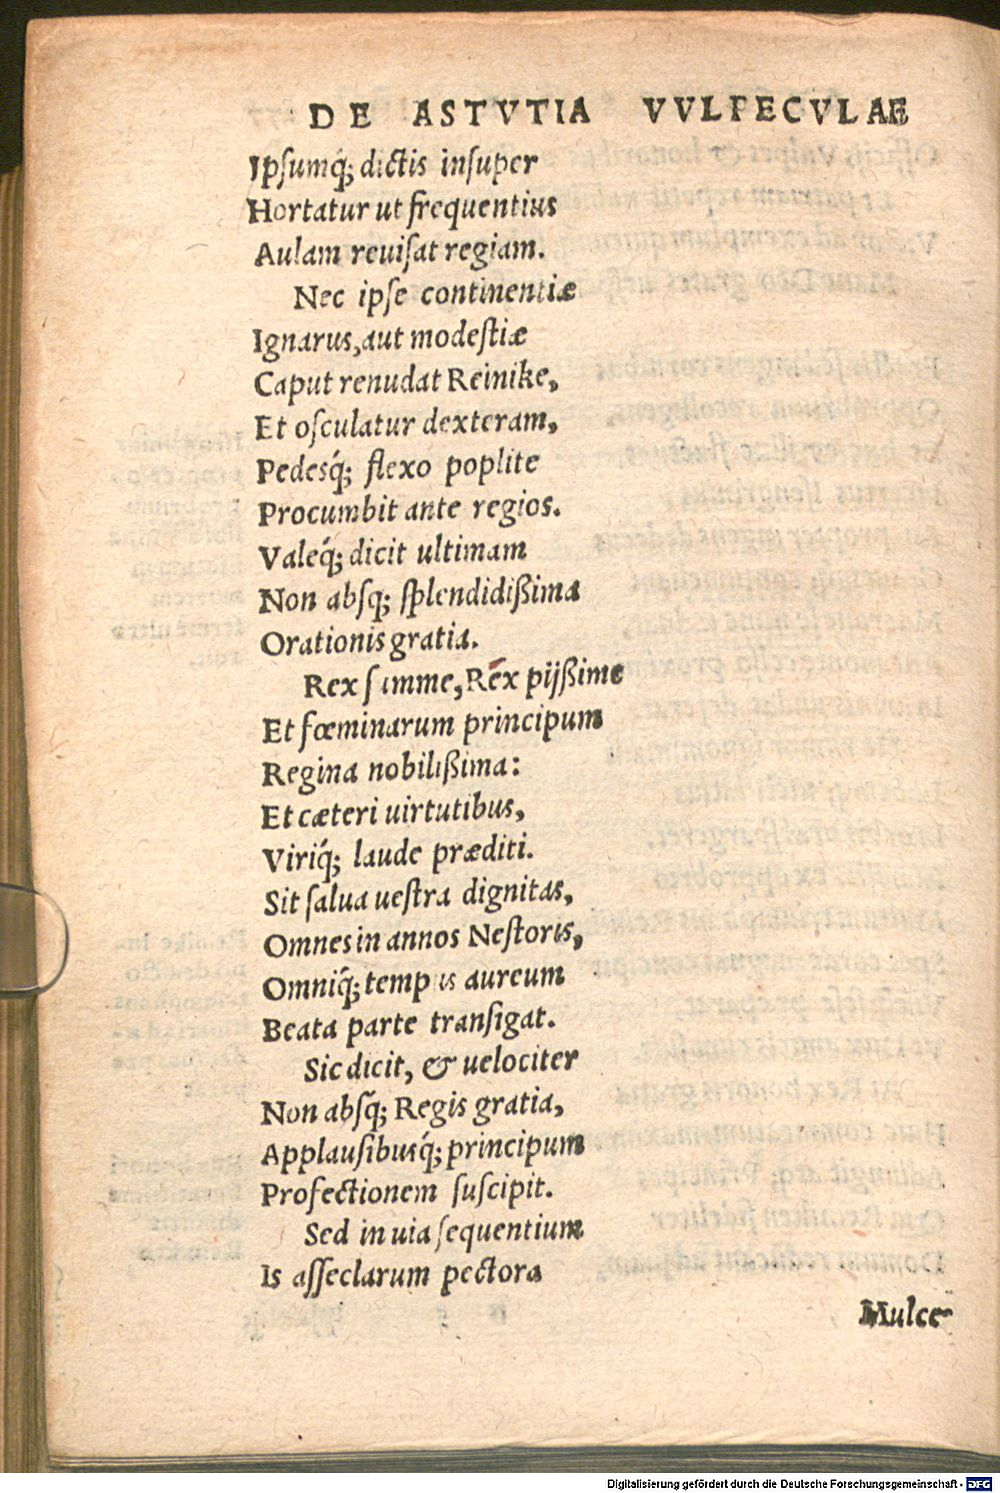 DE ASTVTIA VVLPECVLAE
Ipsumq́; dictis insuper
Hortatur ut frequentius
Aulam reuisat regiam.
Nec ipse continentiæ
Ignarus, aut modestiæ
Caput renudat Reinike,
Et osculatur dexteram,
Pedesq́; flexo poplite
Procumbit ante regios.
Valeq́; dicit ultimam
Non absq; splendidißima
Orationis gratia.
Rex summe, Rex pijßime
Et fœminarum principum
Regina nobilißima:
Et cæteri uirtutibus,
Viriq́; laude præditi.
Sit salua uestra dignitas,
Omnes in annos Nestoris,
Omniq́; tempus aureum
Beata parte transigat.
Sic dicit, & uelociter
Non absq; Regis gratia,
Applausibusq́; principum
Profectionem suscipit.
Sed in uia sequentium
Is asseclarum pectora
Mulce-
Digitalisierung gefördert durch die Deutsche Forschungsgemeinschaft - DFG